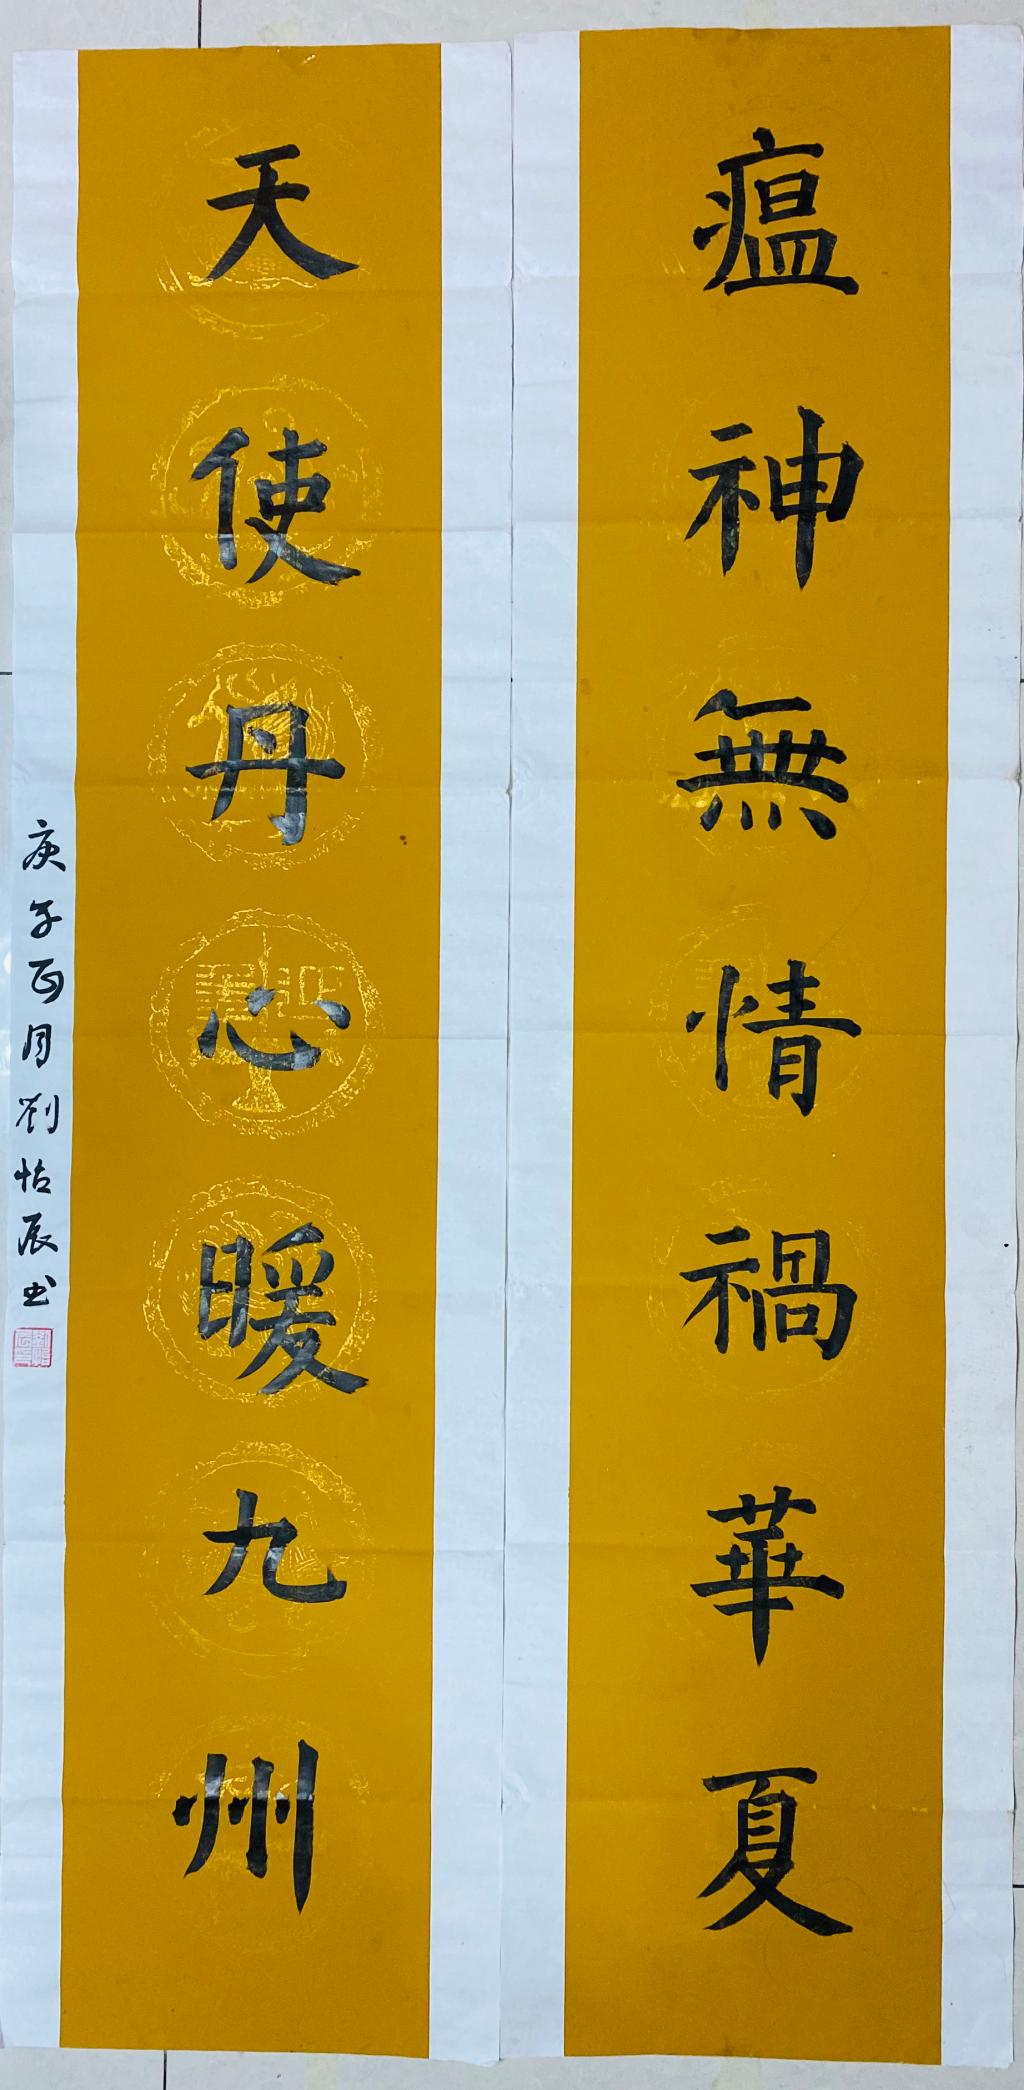 瘟神無情禍華夏
天使丹心暖九州
庚子正月劉怡辰书